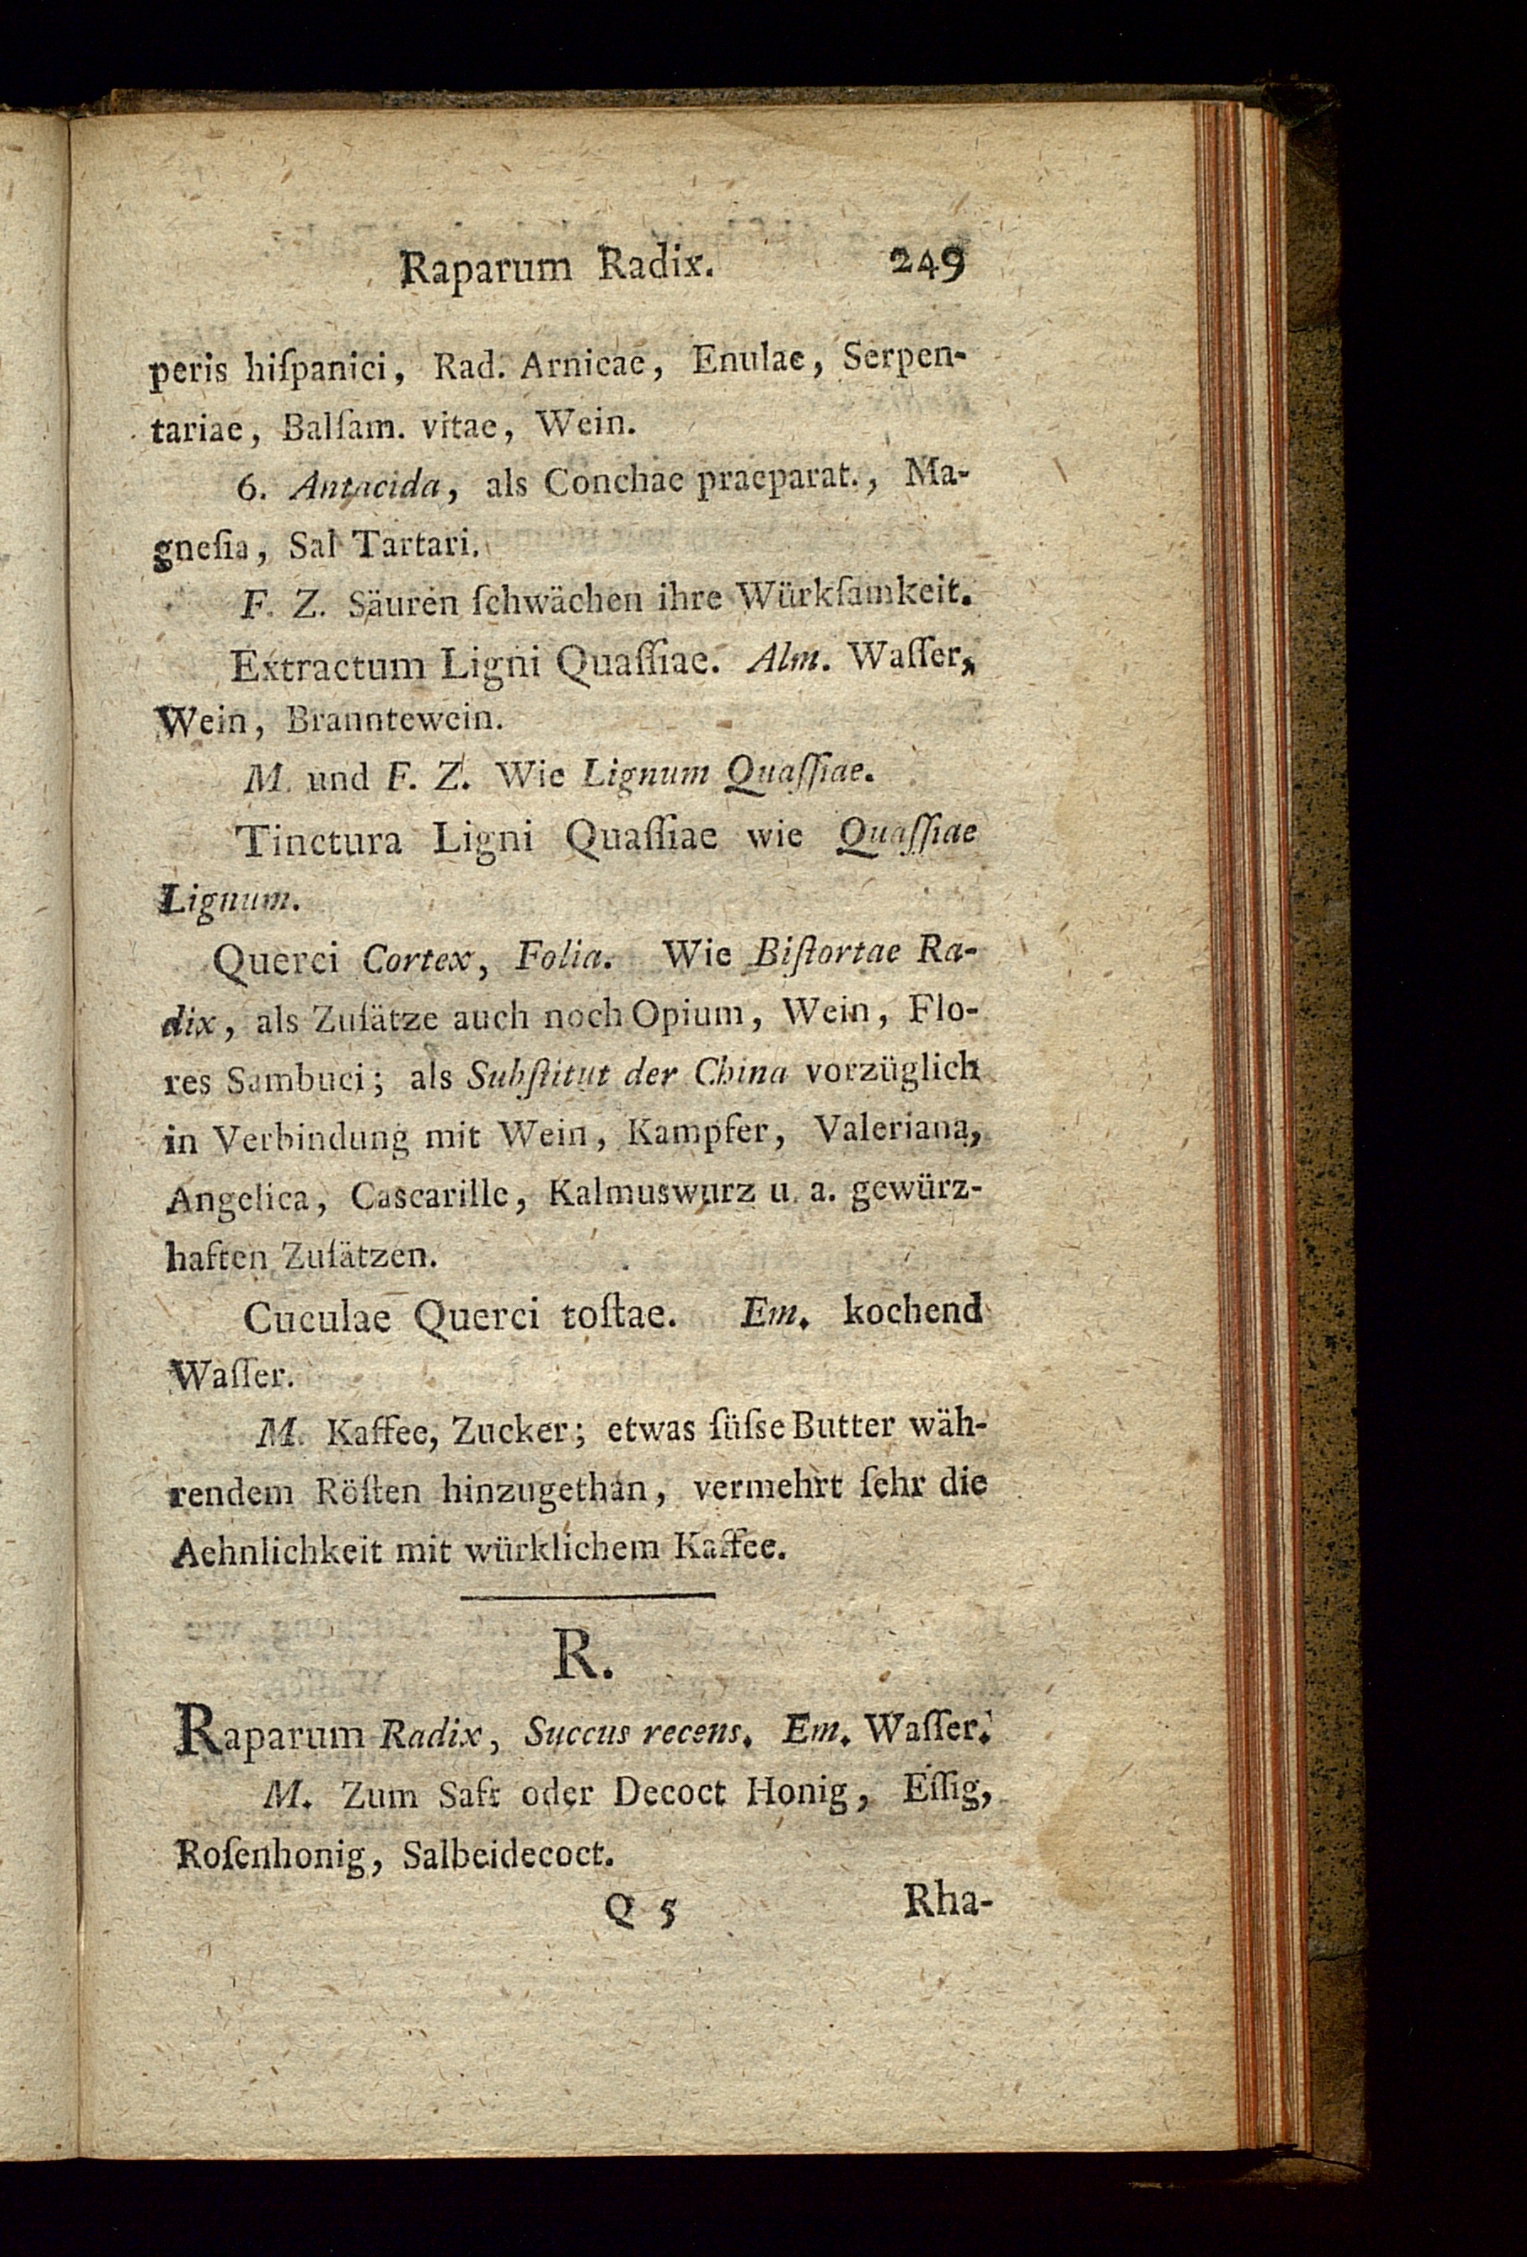 Raparum Radix. 249
peris hiſpanici, Rad. Arnicae, Enulae, Serpen-
tariae, Balſam. vitae, Wein.
6. Antacida, als Conchae praeparat., Ma-
gneſia, Sal Tartari.
F. Z. Säuren ſchwächen ihre Würkſamkeit.
Extractum Ligni Quaſſiae. Alm. Waſſer,
Wein, Branntewein.
M. und F. Z. Wie Lignum Quaſſiae.
Tinctura Ligni Quaſſiae wie Quaſſiae
Lignum.
Querci Cortex, Folia. Wie Biſtortae Ra-
dix, als Zuſätze auch noch Opium, Wein, Flo-
res Sambuci; als Subſtitut der China vorzüglich
in Verbindung mit Wein, Kampfer, Valeriana,
Angelica, Cascarille, Kalmuswurz u. a. gewürz-
haften Zuſätzen.
Cuculae Querci toſtae. Em. kochend
Waſſer.
M. Kaffee, Zucker; etwas ſüſse Butter wäh-
rendem Röſten hinzugethan, vermehrt ſehr die
Aehnlichkeit mit würklichem Kaffee.
R.
Raparum Radix, Succus recens. Em. Waſſer.
M. Zum Saft oder Decoct Honig, Eſſig,
Roſenhonig, Salbeidecoct.
Q 5 Rha-